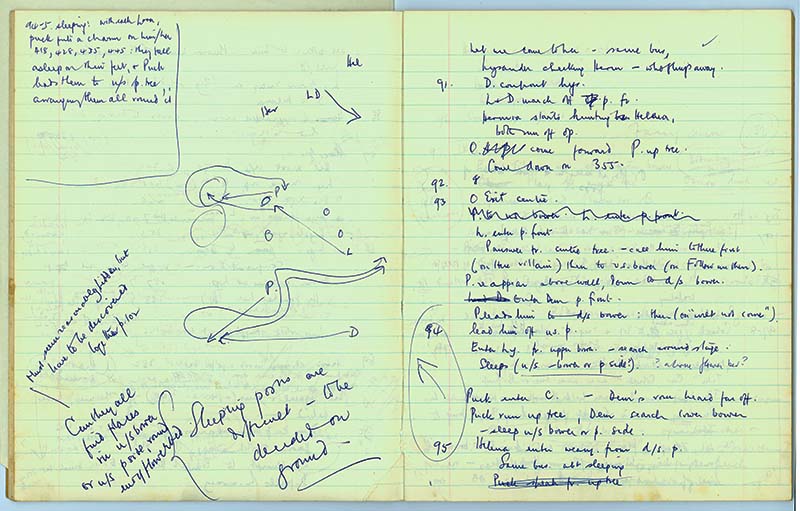 94-5 sleeping: with each
puck puts a charm on him/her
418, 428, 435, 445: they fall
asleep on their feet, & Puck
leads them to u/s. p. tree,
arranging them all round it
Hel
LD
Her
P
O
O
B
O
L
P.
D
Must seem reasonably hidden, but
have to be discovered
by
Can they all
find places
in u/s bower
or u/s p side, round
end of flower bed
Sleeping posns are
different - to be
decided on
ground -
- same bus,
Lysander checking Hermia -
91. D. confront Lys.
L & D. march off p. fr.
Hermia starts hunting Helena,
both run off op.
O. come forward P. up tree.
Come down on 355.
92.
93 O Exit centre.
L. enter p. front
P answer fr. centre tree. - call him to there front
(on Here villain) then to u.s. bower (on Follow me then).
P. reappear above well, down to d/s bower.
Enter Dem p. front.
P leads him to d/s bower: then (on "wilt not come")
94 lead him off u.s. p.
Enter Lys. fr. upper bower. - search around stage.
Sleeps (u/s - bower or p side?). ? above flower bed?
Puck enter C. - Dem's voice heard far off.
Puck run up tree, Dem search lower bower
- sleep u/s bower or p. side.
95- Helena enter weary from d/s. p.
Same bus. abt sleeping
Puck speak fr. up tree